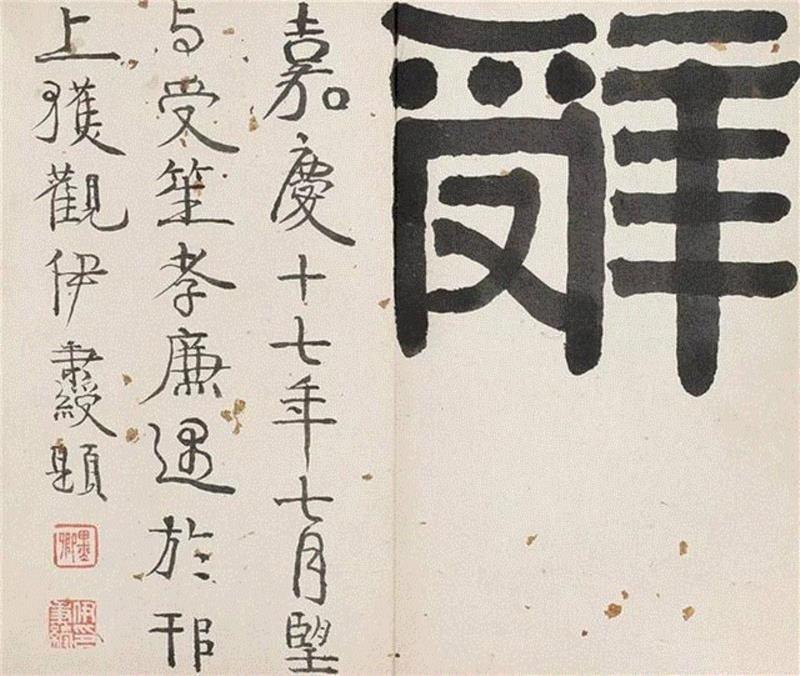 嘉慶十七年七月望
与受笙孝廉遇於邗
上獲觀伊秉綬題
墨卿
伊印秉綬